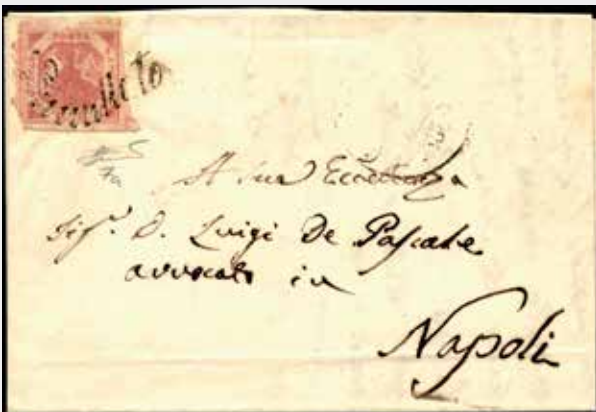 Annullato
A Sua Eccellenza
Sig.r D. Luigi De Pascale
avvocato in
Napoli